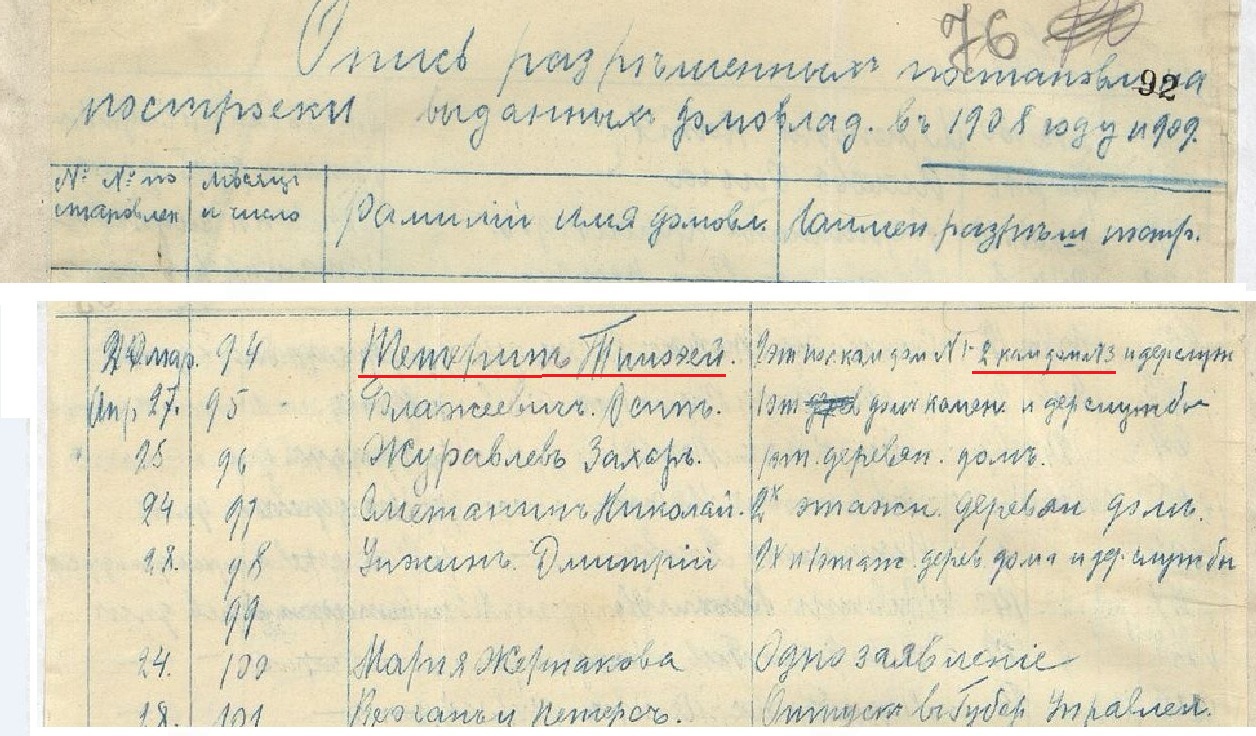 76
92
Опись разрѣшенныхъ постановл на
постройки выданныхъ домовлад. въ 1908 году и 909.
№ № по становлен
мѣсяцъ и число
Фамилiи имя домовл.
Наимен разрѣш постр.
мар. 94 Печокринъ Тимофей. дом № 2 кам дом № 3 и дер служ
Апр 27. 95 - Блажеевичъ. Осипъ. 1 эт домъ камен и дер службы
25 96 Журавлевъ Захаръ. 1 эт. деревян. домъ.
24 97 Сметанинъ Николай. 2х этажн. деревян домъ.
28. 98 Унжинъ. Дмитрiй дерев дома и дер службы
99
24. 100 Мария Жермакова Одно заявленiе
18. 101 Петерсъ. Отпуск въ Губер Управлен.